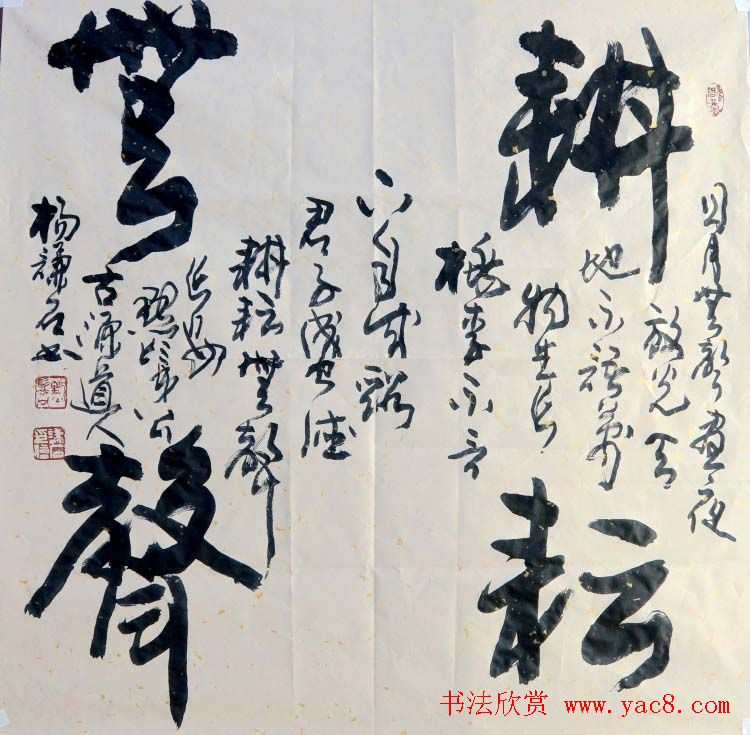 耕耘
無聲
日月無聲晝夜
放光天
地不語萬
物生長
桃李不言
下自成蹊
君子成
耕耘無聲
古源道人
楊謙
书法欣赏 www.yac8.com